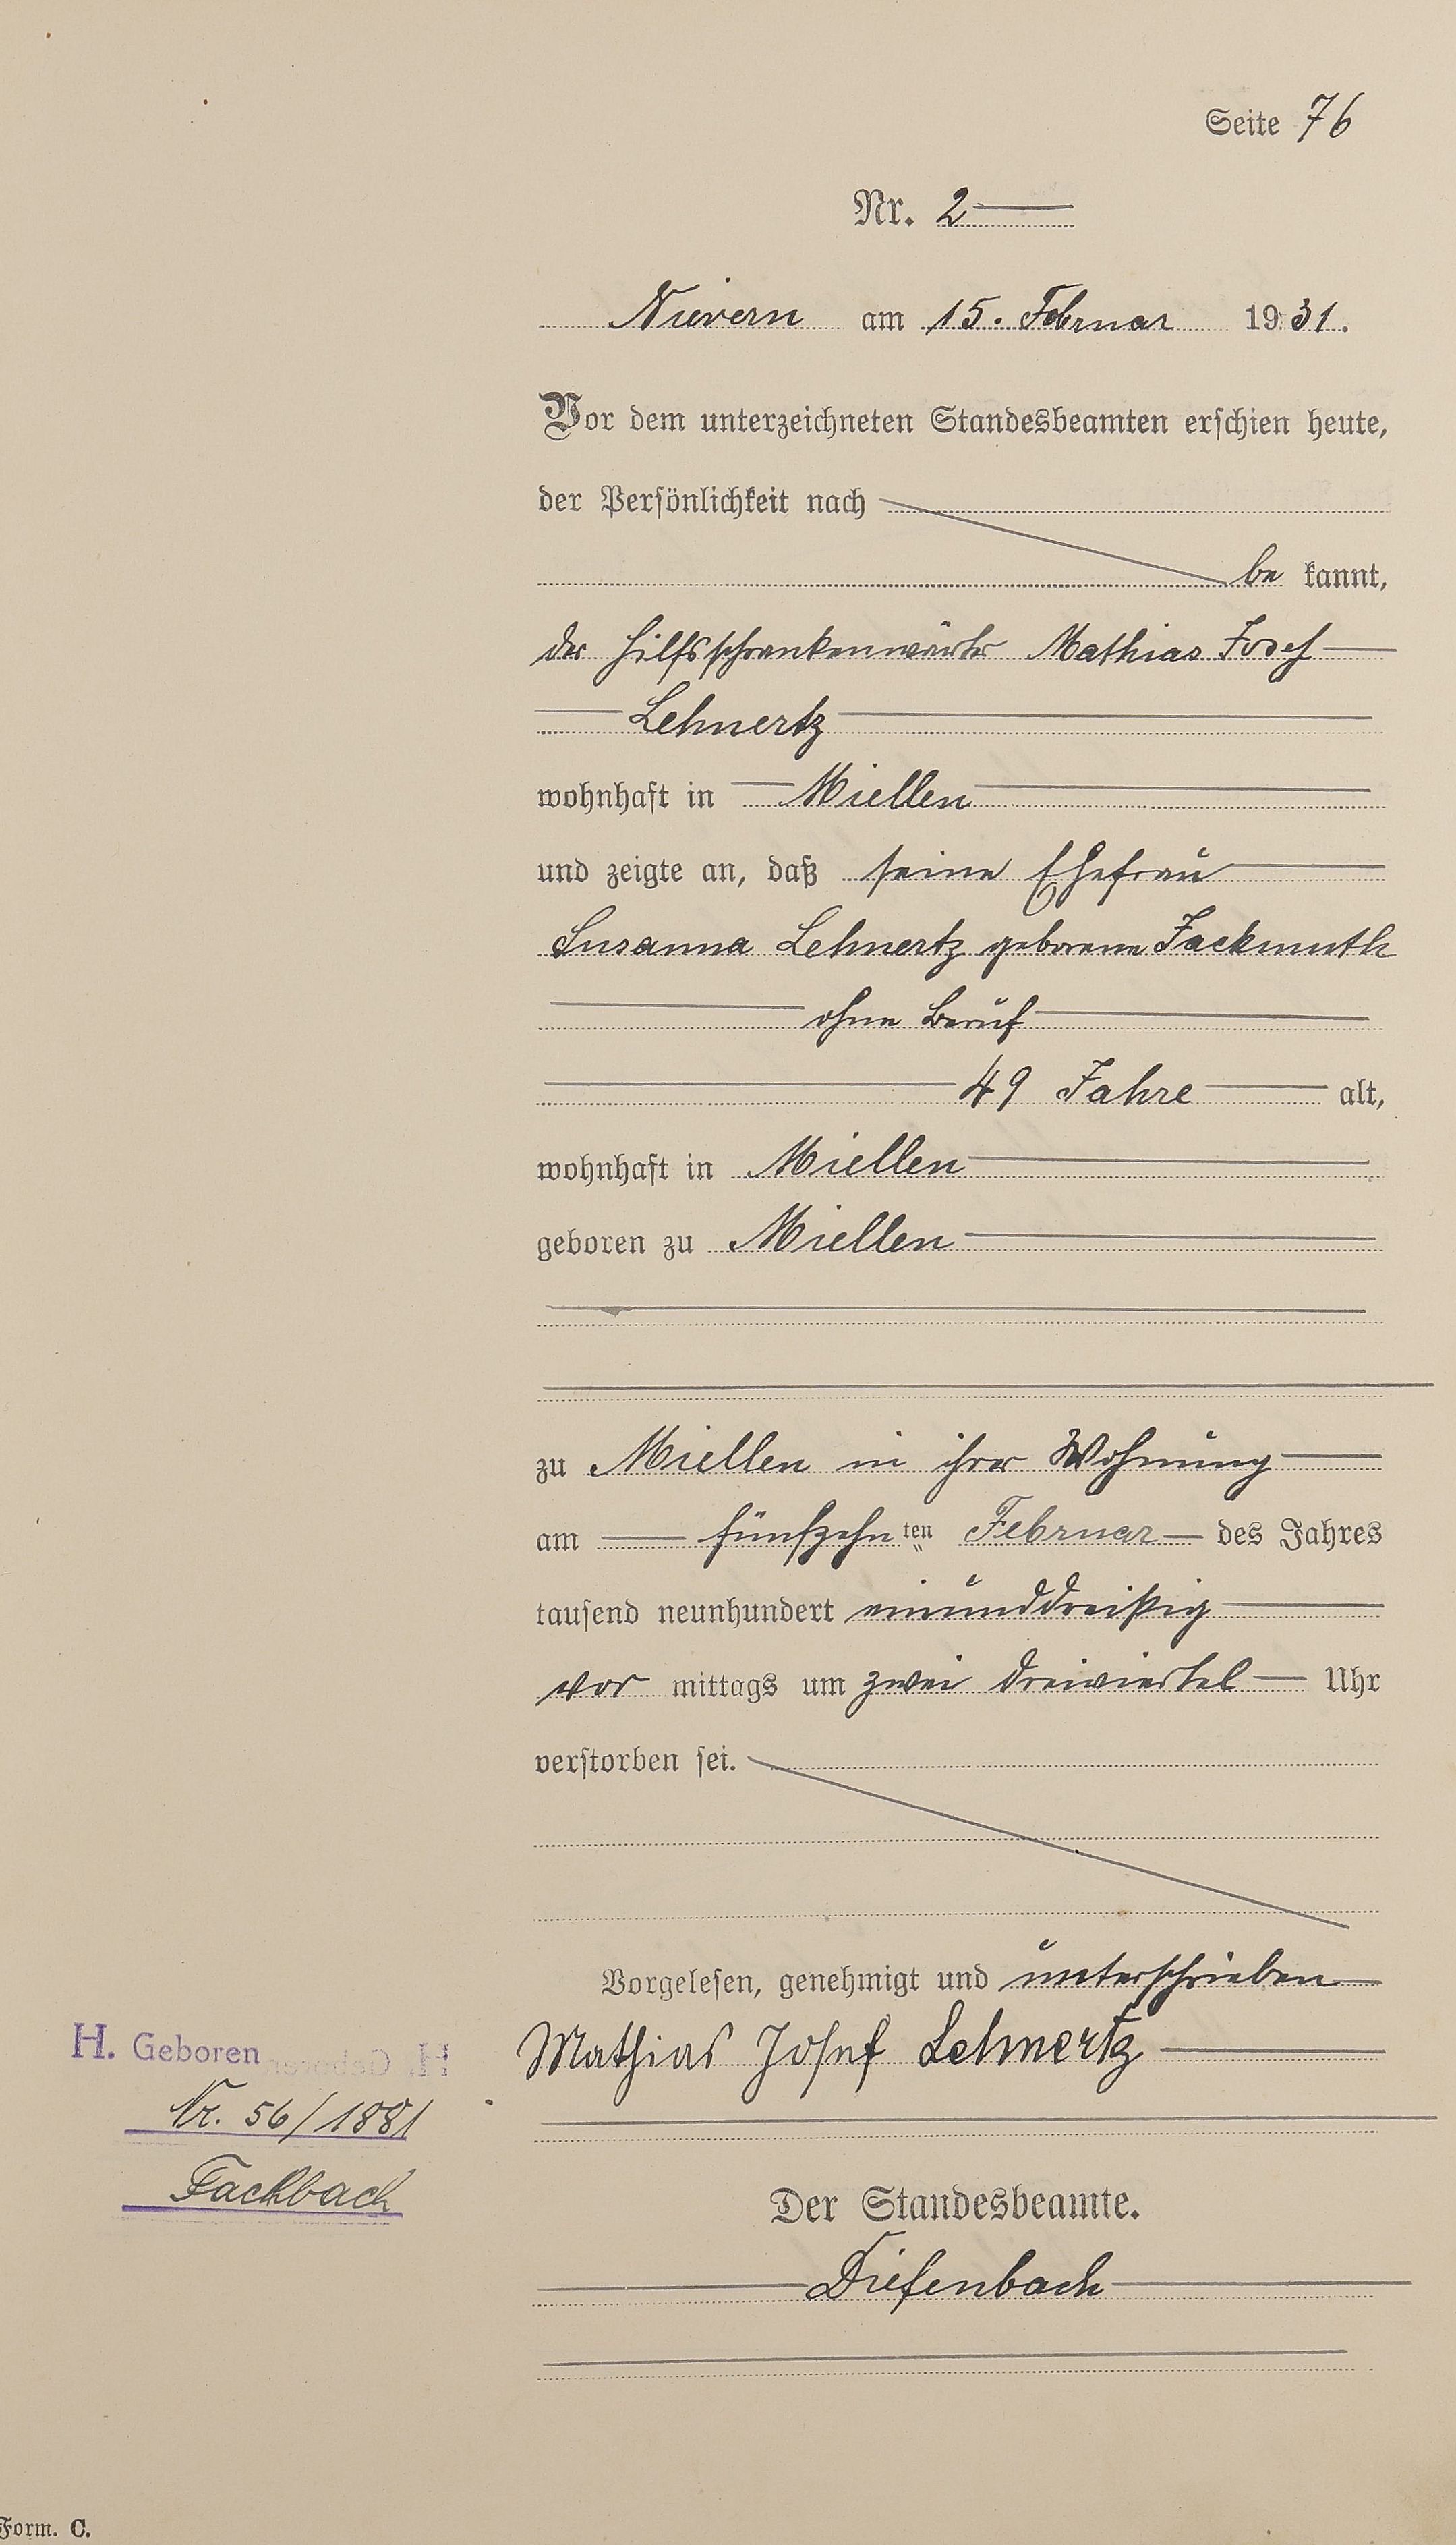 Seite 76
Nr. 2
Nievern am 15. Februar 1931.
Vor dem unterzeichneten Standesbeamten erschien heute,
der Persönlichkeit nach
be kannt,
der Hilfsschrankenwärter Mathias Josef
Lehnertz
wohnhaft in Miellen
und zeigte an, daß seine Ehefrau
Susanna Lehnertz geborene Fackmuth
ohne Beruf
49 Jahre alt,
wohnhaft in Miellen
geboren zu Miellen
zu Miellen in ihrer Wohnung
am fünfzehn ten Februar des Jahres
tausend neunhundert einunddreißig
vor mittags um zwei dreiviertel Uhr
verstorben sei.
Vorgelesen, genehmigt und unterschrieben
Mathias Josef Lehnertz
H. Geboren
Nr. 56/1881
Fachbach
Der Standesbeamte.
Diefenbach
Form. C.